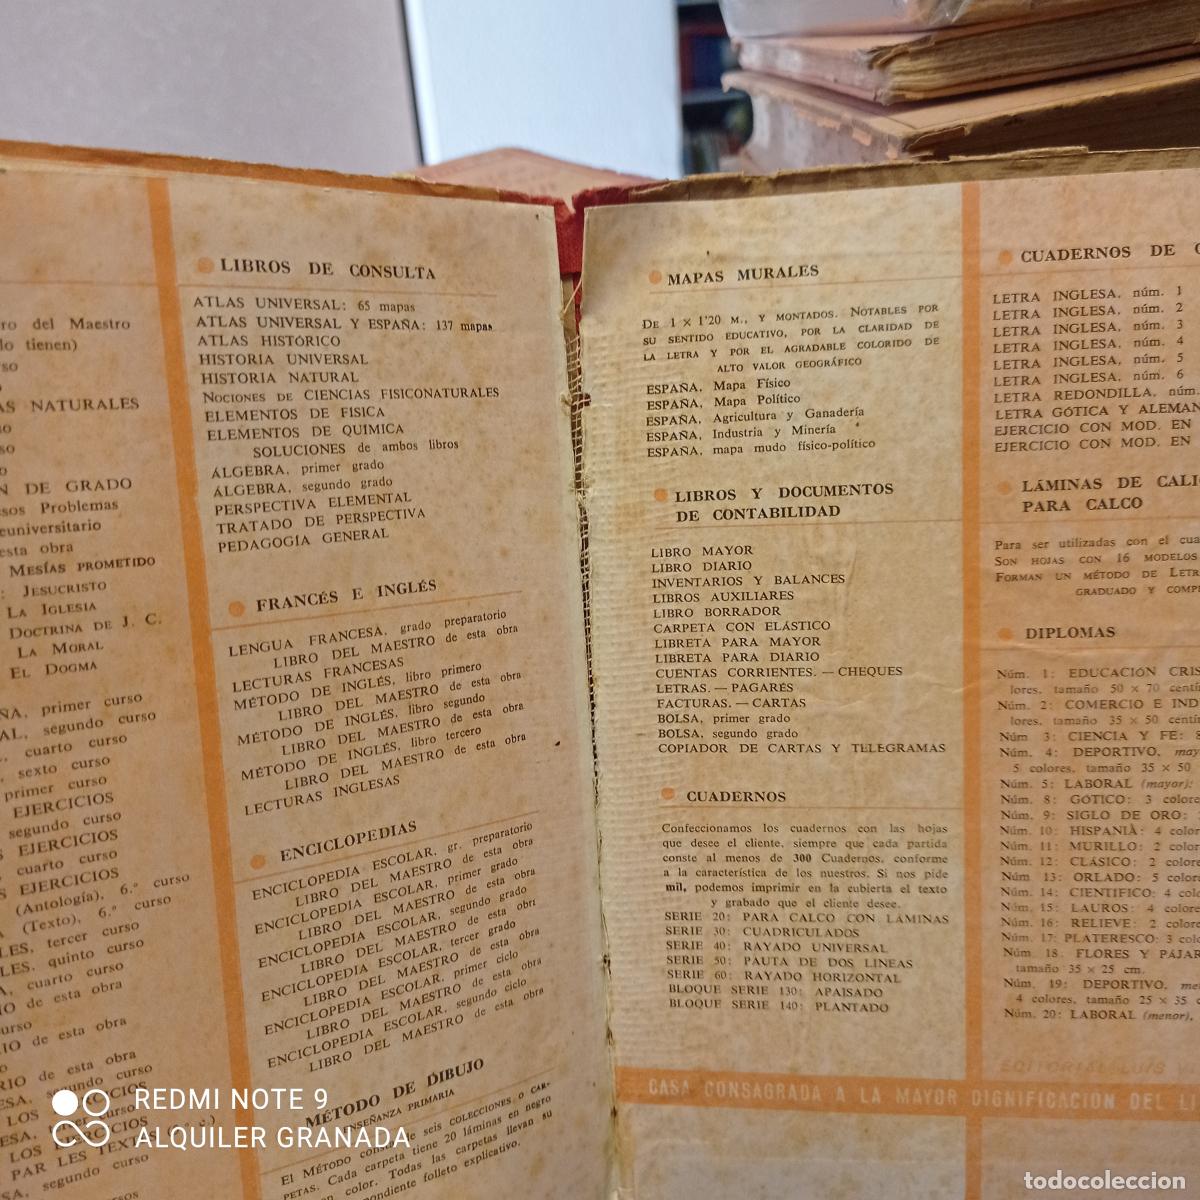 ro del Maestro
lo tienen)
so
AS NATURALES
so
N DE GRADO
sos Problemas
euniversitario
esta obra
MESÍAS PROMETIDO
: JESUCRISTO
LA IGLESIA
DOCTRINA DE J. C.
LA MORAL
EL DOGMA
ÑA, primer curso
AL, segundo curso
cuarto curso
, sexto curso
primer curso
EJERCICIOS
segundo curso
EJERCICIOS
cuarto curso
EJERCICIOS
(Antología), 6.º curso
A (Texto), 6.º curso
LES, tercer curso
LES, quinto curso
A, cuarto curso
IO de esta obra
curso
IO de esta obra
RIO de esta obra
ESA, segundo curso
LOS EJERCICIOS
ESA, tercer curso
LOS EJERCICIOS
PAR LES TEXTES
SA, segundo curso
LIBROS DE CONSULTA
ATLAS UNIVERSAL: 65 mapas
ATLAS UNIVERSAL Y ESPAÑA: 137 mapas
ATLAS HISTÓRICO
HISTORIA UNIVERSAL
HISTORIA NATURAL
NOCIONES DE CIENCIAS FISICONATURALES
ELEMENTOS DE FISICA
ELEMENTOS DE QUIMICA
SOLUCIONES de ambos libros
ÁLGEBRA, primer grado
ÁLGEBRA, segundo grado
PERSPECTIVA ELEMENTAL
TRATADO DE PERSPECTIVA
PEDAGOGÍA GENERAL
FRANCÉS E INGLÉS
LENGUA FRANCESA, grado preparatorio
LIBRO DEL MAESTRO de esta obra
LECTURAS FRANCESAS
MÉTODO DE INGLÉS, libro primero
LIBRO DEL MAESTRO de esta obra
MÉTODO DE INGLÉS, libro segundo
LIBRO DEL MAESTRO de esta obra
MÉTODO DE INGLÉS, libro tercero
LIBRO DEL MAESTRO de esta obra
LECTURAS INGLESAS
ENCICLOPEDIAS
ENCICLOPEDIA ESCOLAR, gr. preparatorio
LIBRO DEL MAESTRO de esta obra
ENCICLOPEDIA ESCOLAR, primer grado
LIBRO DEL MAESTRO de esta obra
ENCICLOPEDIA ESCOLAR, segundo grado
LIBRO DEL MAESTRO de esta obra
ENCICLOPEDIA ESCOLAR, tercer grado
LIBRO DEL MAESTRO de esta obra
ENCICLOPEDIA ESCOLAR, primer ciclo
LIBRO DEL MAESTRO de esta obra
ENCICLOPEDIA ESCOLAR, segundo ciclo
LIBRO DEL MAESTRO de esta obra
MÉTODO DE DIBUJO
ENSEÑANZA PRIMARIA
EL MÉTODO consta de seis COLECCIONES O CAR-
PETAS. Cada carpeta tiene 20 láminas en negro
en color. Todas las carpetas llevan su
pondiente folleto explicativo.
MAPAS MURALES
DE 1 × 1'20 M., Y MONTADOS. NOTABLES POR
SU SENTIDO EDUCATIVO, POR LA CLARIDAD DE
LA LETRA Y POR EL AGRADABLE COLORIDO DE
ALTO VALOR GEOGRÁFICO
ESPAÑA, Mapa Físico
ESPAÑA, Mapa Político
ESPAÑA, Agricultura y Ganadería
ESPAÑA, Industria y Minería
ESPAÑA, mapa mudo físico-político
LIBROS Y DOCUMENTOS
DE CONTABILIDAD
LIBRO MAYOR
LIBRO DIARIO
INVENTARIOS Y BALANCES
LIBROS AUXILIARES
LIBRO BORRADOR
CARPETA CON ELÁSTICO
LIBRETA PARA MAYOR
LIBRETA PARA DIARIO
CUENTAS CORRIENTES. — CHEQUES
LETRAS. — PAGARÉS
FACTURAS. — CARTAS
BOLSA, primer grado
BOLSA, segundo grado
COPIADOR DE CARTAS Y TELEGRAMAS
CUADERNOS
Confeccionamos los cuadernos con las hojas
que desee el cliente, siempre que cada partida
conste al menos de 300 Cuadernos, conforme
a la característica de los nuestros. Si nos pide
mil, podemos imprimir en la cubierta el texto
y grabado que el cliente desee.
SERIE 20: PARA CALCO CON LÁMINAS
SERIE 30: CUADRICULADOS
SERIE 40: RAYADO UNIVERSAL
SERIE 50: PAUTA DE DOS LINEAS
SERIE 60: RAYADO HORIZONTAL
BLOQUE SERIE 130: APAISADO
BLOQUE SERIE 140: PLANTADO
CUADERNOS DE C
LETRA INGLESA, núm. 1
LETRA INGLESA, núm. 2
LETRA INGLESA, núm. 3
LETRA INGLESA, núm. 4
LETRA INGLESA, núm. 5
LETRA INGLESA, núm. 6
LETRA REDONDILLA, núm.
LETRA GÓTICA Y ALEMAN
EJERCICIO CON MOD. EN
EJERCICIO CON MOD. EN
LÁMINAS DE CALIG
PARA CALCO
Para ser utilizadas con el cua
SON HOJAS CON 16 MODELOS
FORMAN UN MÉTODO DE LETR
GRADUADO Y COMPL
DIPLOMAS
Núm. 1: EDUCACIÓN CRIS
lores, tamaño 50 × 70 centí
Núm. 2: COMERCIO E IND
lores, tamaño 35 × 50 centí
Núm 3: CIENCIA Y FE: 8
Núm. 4: DEPORTIVO, may
5 colores, tamaño 35 × 50
Núm. 5: LABORAL (mayor):
Núm. 8: GÓTICO: 3 colore
Núm. 9: SIGLO DE ORO: 3
Núm. 10: HISPANIA: 4 color
Núm. 11: MURILLO: 2 color
Núm. 12: CLÁSICO: 2 color
Núm 13: ORLADO: 5 color
Núm. 14: CIENTIFICO: 4 color
Núm. 15: LAUROS: 4 color
Núm. 16: RELIEVE: 2 color
Núm. 17: PLATERESCO: 3 colo
Núm. 18. FLORES Y PÁJAR
tamaño 35 × 25 cm.
Núm. 19: DEPORTIVO, me
4 colores, tamaño 25 × 35 c
Núm. 20: LABORAL (menor),
EDITORIAL LUIS V
CASA CONSAGRADA A LA MAYOR DIGNIFICACIÓN DEL LI
REDMI NOTE 9
ALQUILER GRANADA
todocoleccion